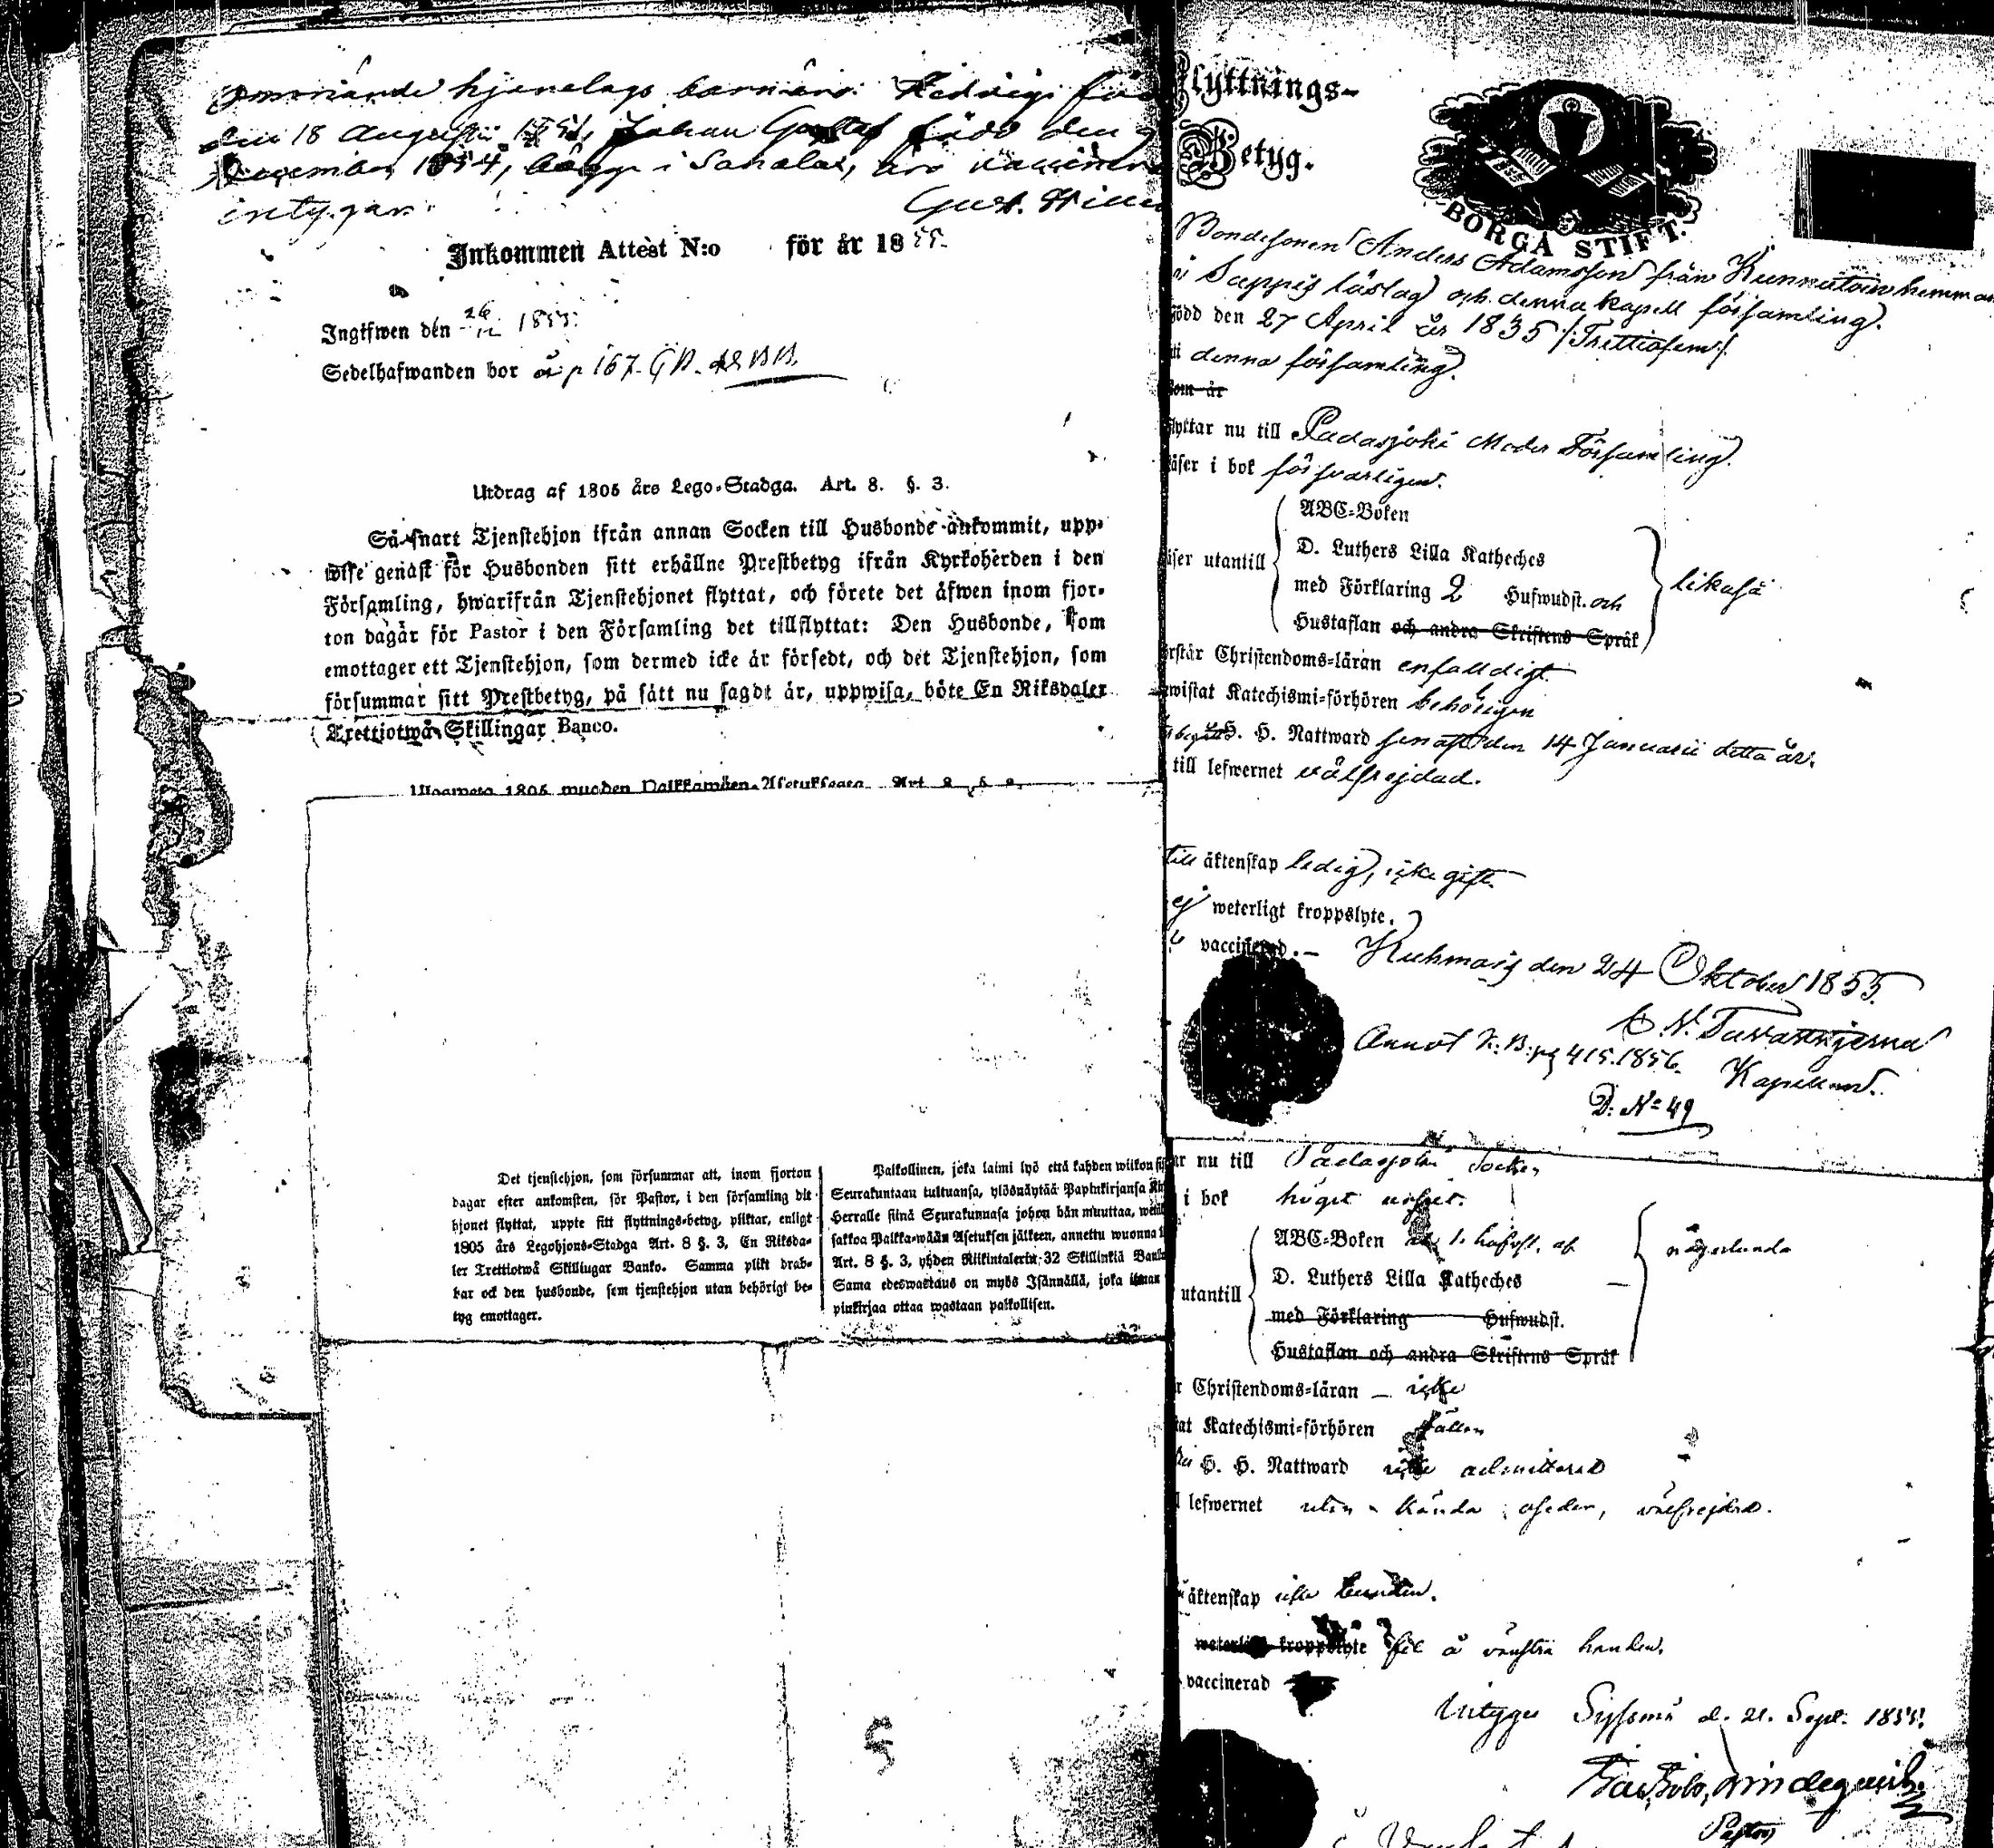 hjonelags barn äro: Hedvig
den 18 Augusti Johan Gustaf född den
December 1854, i Sahalax, äro
intygar.
Gust.
Inkommen Attest N:o för år 1855.
Ingifwen den 1855
Sedelhafwanden bor å p 167.
Utdrag af 1805 års Lego-Stadga. Art. 8. §. 3.
Så snart Tjenstehjon ifrån annan Socken till Husbonde ankommit, upp-
wise genast för Husbonden sitt erhållne Prestbetyg ifrån Kyrkoherden i den
Församling, hwarifrån Tjenstehjonet flyttat, och förete det äfwen inom fjor-
ton dagar för Pastor i den Församling det tillflyttat: Den Husbonde, som
emottager ett Tjenstehjon, som dermed icke är försedt, och det Tjenstehjon, som
försummar sitt Prestbetyg, på sätt nu sagdt är, uppwisa, böte En Riksdaler
Trettiotwå Skillingar Banco.
1805 wuoden Palkkawäen-Asetuksesta. Art. 8. §.
Det tjenstehjon, som försummar att, inom fjorton
dagar efter ankomsten, för Pastor, i den församling dit
hjonet flyttat, uppte sitt flyttnings-betyg, pliktar, enligt
1805 års Legohjons-Stadga Art. 8 §. 3, En Riksda-
ler Trettiotwå Skillingar Banko. Samma plikt drab-
bar ock den husbonde, som tjenstehjon utan behörigt be-
tyg emottager.
Palkollinen, joka laimi lyö että kahden wiikon
Seurakuntaan tultuansa, ylösnäytää Papinkirjansa
Herralle siinä Seurakunnasa johon hän muuttaa,
sakkoa Palkka-wään Asetuksen jälkeen, annettu wuonna
Art. 8 §. 3, yhden Riikintalerin 32 Skillinkiä
Sama edeswastaus on myös Isännällä, joka ilman
pinkirjaa ottaa wastaan palkollisen.
Flyttnings-
Betyg.
BORGÅ STIFT.
Bondesonen Anders Adamsson från
i Sappis löslag och denna kapell församling.
född den 27 April år 1835 /:Trettiofem:/
i denna församling.
som är
flyttar nu till Padasjoki Moder Församling.
läser i bok försvarligen.
ABC-Boken
D. Luthers Lilla Katheches
läser utantill med Förklaring 2 Hufwudst. och likaså
Hustaflan och andra Skriftens Språk
förstår Christendoms-läran enfaldigt
bewistat Katechismi-förhören behörigen
begått H. H. Nattward senast den 14 Januarii detta år.
till lefwernet välfrejdad.
till äktenskap ledig, icke gift.
ej weterligt kroppslyte.
vaccinerad. — Kuhmois den 24 Oktober 1855.
Kapellan.
Annot K.B. pg 415. 1856.
D: No 49
nu till Padasjoki Socken
i bok högst
ABC-Boken 1. hufvst. af
D. Luthers Lilla Katheches någorlunda
utantill
med Förklaring Hufwudst.
Hustaflan och andra Skriftens Språk
Christendoms-läran — icke
Katechismi-förhören sällan
H. H. Nattward icke admitterad
lefwernet utan kända oseder, välfrejdad.
äktenskap icke bunden.
weterligt kroppslyte fel å venstra handen.
vaccinerad
Intygar Sysmä d. 21. Sept. 1855.
Pastor